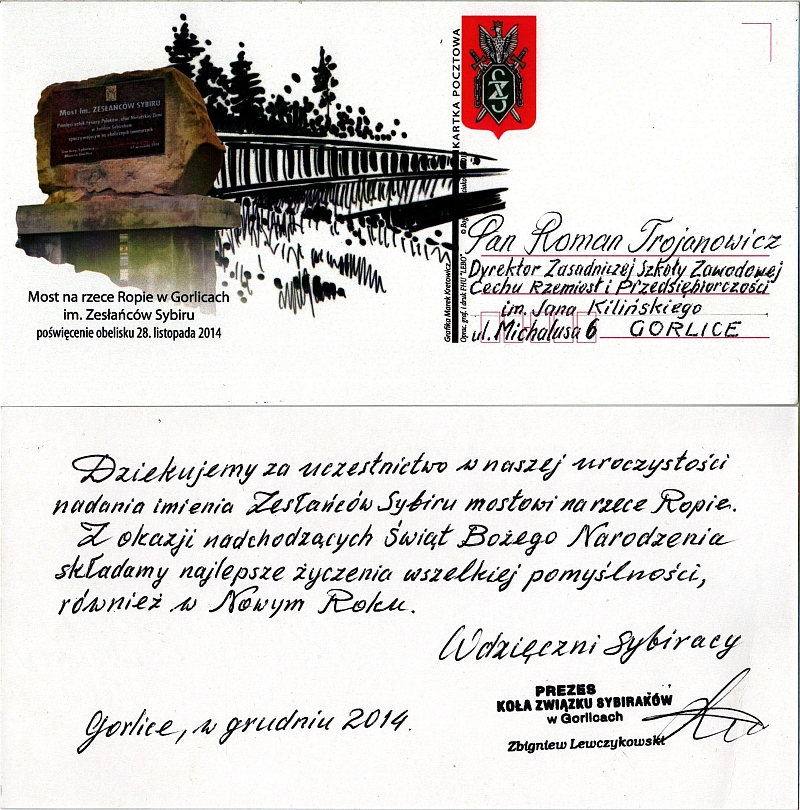 Most im. ZESŁAŃCÓW SYBIRU
KARTKA POCZTOWA
Grafika Marek Kretowicz
Most na rzece Ropie w Gorlicach
im. Zesłańców Sybiru
poświęcenie obelisku 28. listopada 2014
Pan Roman Trojanowicz
Dyrektor Zasadniczej Szkoły Zawodowej
Cechu Rzemiosł i Przedsiębiorczości
im. Jana Kilińskiego
ul. Michalusa 6 GORLICE
Dziekujemy za uczestnictwo w naszej uroczystości
nadania imienia Zesłańców Sybiru mostowi na rzece Ropie.
Z okazji nadchodzących Świąt Bożego Narodzenia
składamy najlepsze życzenia wszelkiej pomyślności,
również w Nowym Roku.
Wdzięczni Sybiracy
PREZES
KOŁA ZWIĄZKU SYBIRAKÓW
w Gorlicach
Zbigniew Lewczykowski
Gorlice, w grudniu 2014.